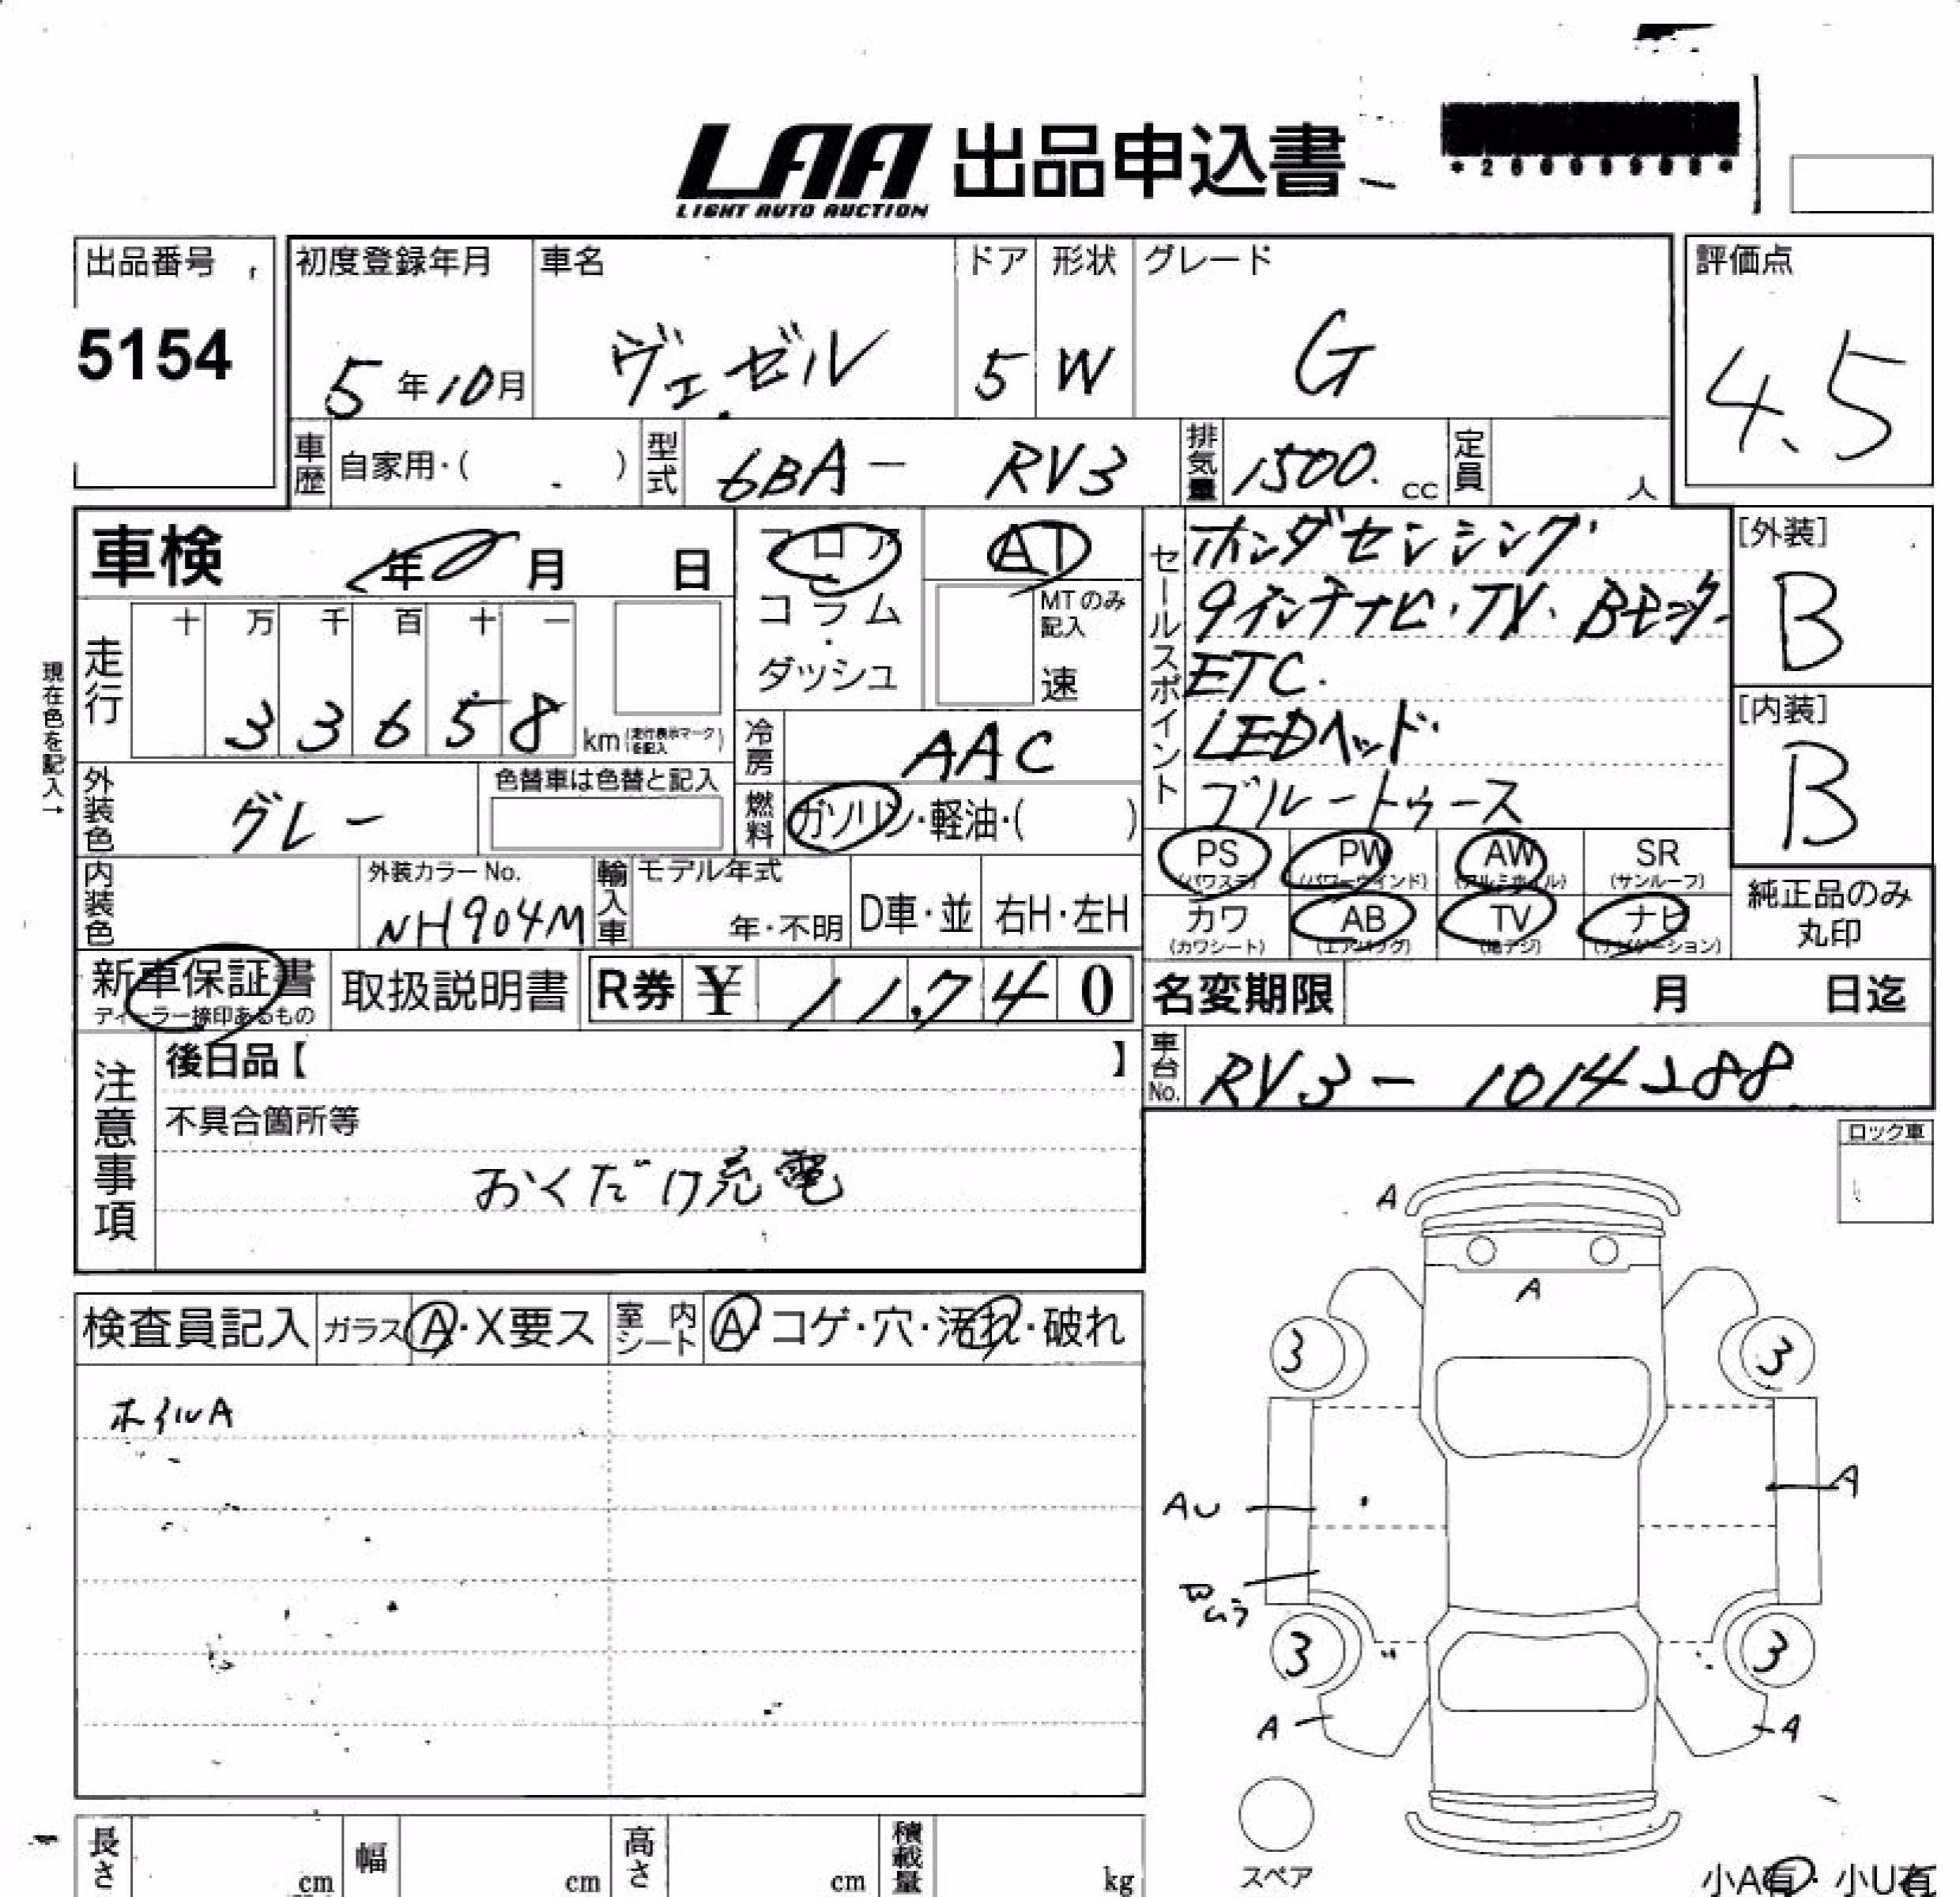 LAA 出品申込書
LIGHT AUTO AUCTION
出品番号
5154
初度登録年月
5年10月
車名
ヴェゼル
ドア
5
形状
W
グレード
G
評価点
4.5
車歴 自家用・( )
型式 6BA- RV3
排気量 1500. cc
定員 人
車検 年 月 日
フロア
コラム
・
ダッシュ
AT
MTのみ記入
速
セールスポイント
ホンダセンシング
9インチナビ・TV・Bモニター
ETC.
LEDヘッド
ブルートゥース
[外装]
B
[内装]
B
現在色を記入→
走行
十 万 千 百 十 一
3 3 6 5 8 km (走行表示マークを記入)
冷房 AAC
外装色 グレー
色替車は色替と記入
燃料 ガソリン・軽油・( )
内装色
外装カラー No.
NH904M
輸入車
モデル年式
年・不明
D車・並
右H・左H
PS (パワステ)
PW (パワーウインド)
AW (アルミホイル)
SR (サンルーフ)
カワ (カワシート)
AB (エアバッグ)
TV (地デジ)
ナビ (ナビゲーション)
純正品のみ
丸印
新車保証書
ディーラー捺印あるもの
取扱説明書
R券 ¥ 11,740
名変期限 月 日迄
車台No. RV3-1014288
注意事項
後日品【 】
不具合箇所等
おくだけ充電
ロック車
検査員記入
ガラス A・X要ス
室内シート A・コゲ・穴・汚れ・破れ
ホイルA
A
A
3
3
AU
A
3
3
A
A
スペア
小A有・小U有
長さ cm
幅 cm
高さ cm
積載量 kg